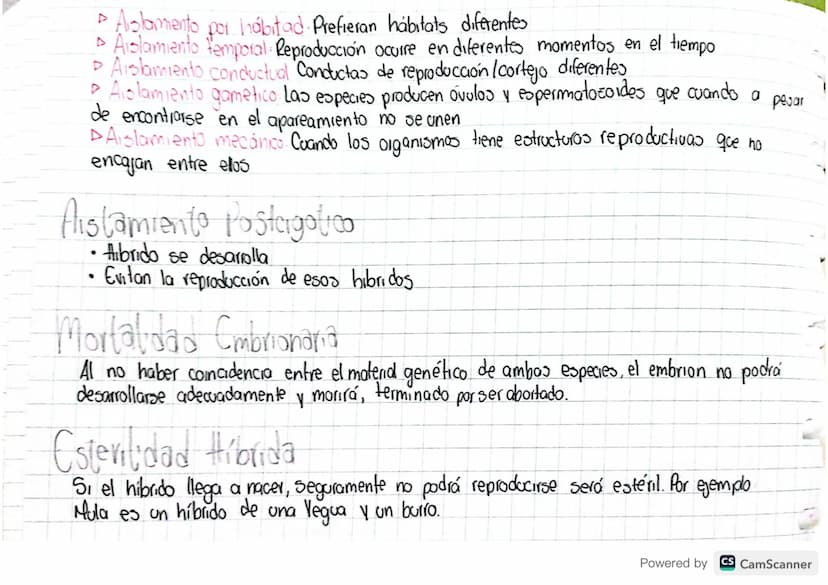 ▷ Aislamiento por hábitad. Prefieran hábitats diferentes
▷ Aislamiento temporal. Reproducción ocurre en diferentes momentos en el tiempo
▷ Aislamiento conductual Conductas de reproducción/cortejo diferentes
▷ Aislamiento gamético Las especies producen óvulos y espermatozoides que cuando a pesar
de encontrarse en el apareamiento no se unen
▷ Aislamiento mecánico. Cuando los organismos tiene estructuras reproductivas que no
encajan entre ellos
Aislamiento Postcigotico
• Hibrido se desarrolla
• Evitan la reproducción de esos hibridos
Mortalidad Embrionaria
Al no haber coincidencia entre el material genético de ambas especies, el embrion no podrá
desarrollarse adecuadamente y morirá, terminado por ser abortado.
Esterilidad Híbrida
Si el híbrido llega a nacer, seguramente no podrá reproducirse será estéril. Por ejemplo
Mula es un híbrido de una Yegua y un burro.
Powered by CS CamScanner